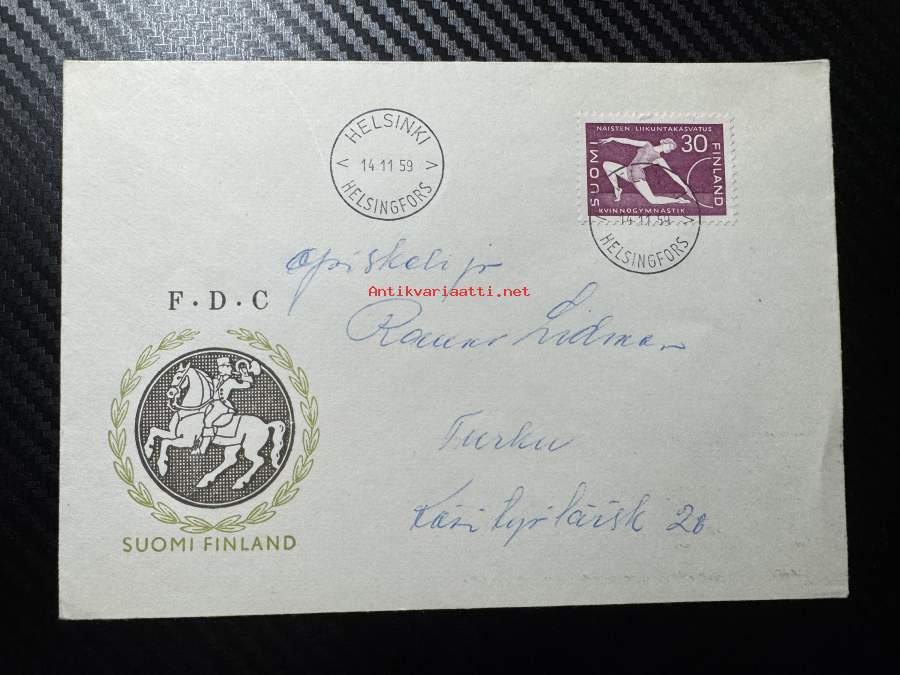 HELSINKI
14.11 59
HELSINGFORS
NAISTEN LIIKUNTAKASVATUS
30
SUOMI
FINLAND
KVINNOGYMNASTIK
14.11.59
HELSINGFORS
opiskelija
Antikvariaatti.net
F·D·C
Rauno Lidman
Turku
20
SUOMI FINLAND